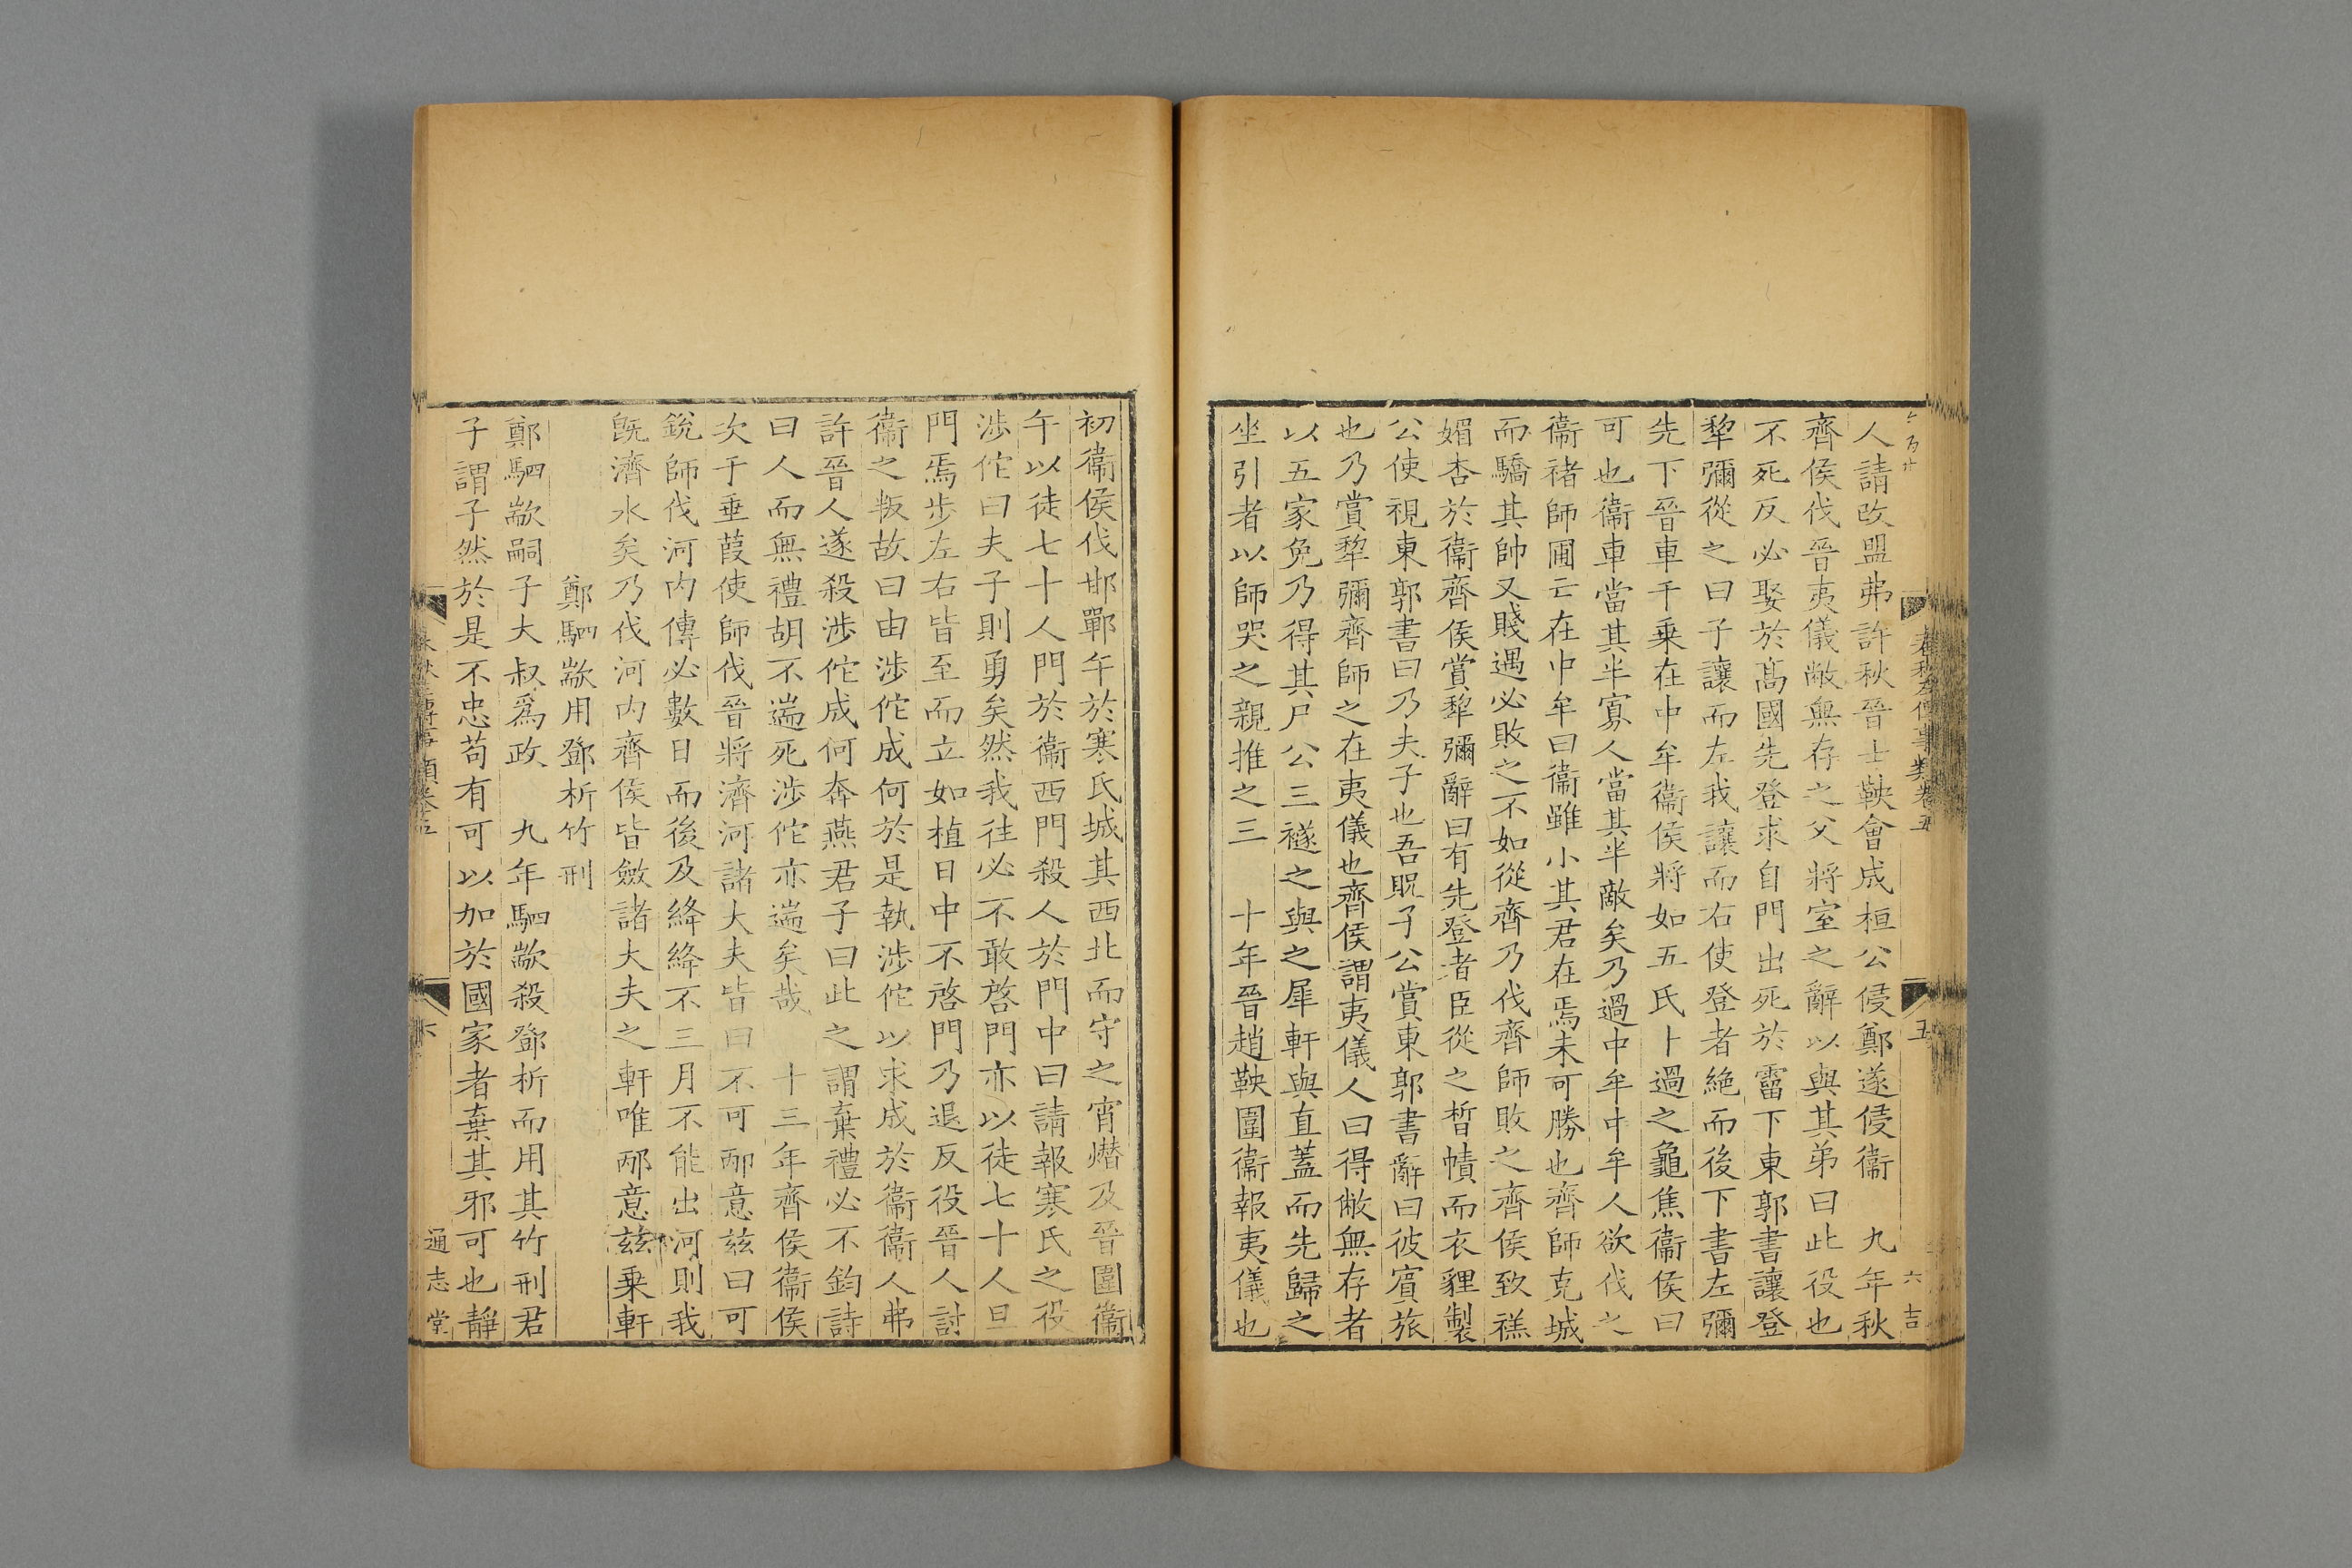 人請改盟弗許秋晉士鞅會成桓公侵鄭遂侵衞　九年秋
齊侯伐晉夷儀敝無存之父將室之辭以與其弟曰此役也
不死反必娶於髙國先登求自門出死於霤下東郭書讓登
犂彌從之曰子讓而左我讓而右使登者絶而後下書左彌
先下晉車千乗在中牟衞侯將如五氏卜過之龜焦衞侯曰
可也衞車當其半寡人當其半敵矣乃過中牟中牟人欲伐之
衞褚師圃亡在中牟曰衞雖小其君在焉未可勝也齊師克城
而驕其帥又賤遇必敗之不如從齊乃伐齊師敗之齊侯致禚
媚杏於衞齊侯賞犂彌辭曰有先登者臣從之晳幘而衣貍製
公使視東郭書曰乃夫子也吾貺子公賞東郭書辭曰彼賔旅
也乃賞犂彌齊師之在夷儀也齊侯謂夷儀人曰得敝無存者
以五家免乃得其尸公三襚之與之犀軒與直蓋而先歸之
坐引者以師哭之親推之三　十年晉趙鞅圍衞報夷儀也
春秋左傳事類卷五
五
六吉
初衞侯伐邯鄲午於寒氏城其西北而守之宵熸及晉圍衞
午以徒七十人門於衞西門殺人於門中曰請報寒氏之役
涉佗曰夫子則勇矣然我往必不敢啓門亦以徒七十人旦
門焉步左右皆至而立如植日中不啓門乃退反役晉人討
衞之叛故曰由涉佗成何於是執涉佗以求成於衞衞人弗
許晉人遂殺涉佗成何奔燕君子曰此之謂棄禮必不鈞詩
曰人而無禮胡不遄死涉佗亦遄矣哉　十三年齊侯衞侯
次于垂葭使師伐晉將濟河諸大夫皆曰不可邴意兹曰可
銳師伐河内傳必數日而後及絳絳不三月不能出河則我
旣濟水矣乃伐河内齊侯皆斂諸大夫之軒唯邴意兹乗軒
鄭駟歂用鄧析竹刑
鄭駟歂嗣子大叔爲政　九年駟歂殺鄧析而用其竹刑君
子謂子然於是不忠苟有可以加於國家者棄其邪可也靜
六
通志堂